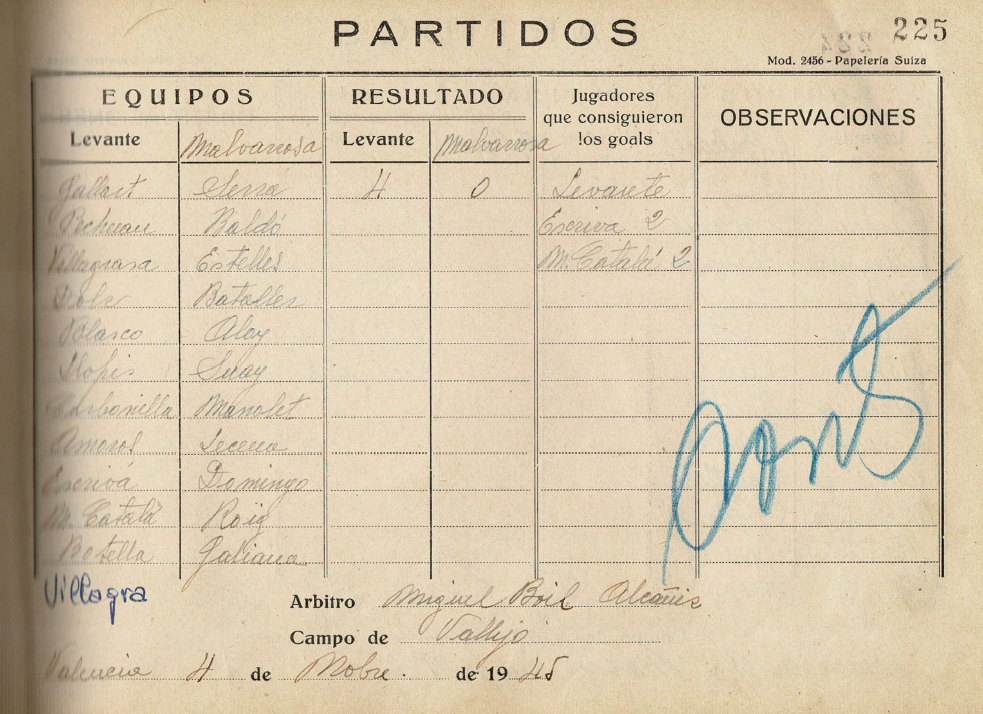 PARTIDOS
225
Mod. 2456 - Papelería Suiza
EQUIPOS RESULTADO Jugadores que consiguieron los goals OBSERVACIONES
Levante Malvarrosa Levante Malvarrosa
Gallart Serra 4 0 Levante
Pechuan Baldó Escriva 2
Villagrasa Estelles M. Catalá 2
Dolz Bataller
Blasco Alcy
Llopis Suay
Carbonilla Manolet
Amorós Lecena
Escrivá Domingo
M. Catalá Roig
Botella Galiana
Villagra
Arbitro Miguel Boil Alcañiz
Campo de Vallejo
Valencia 4 de Nobre. de 1945